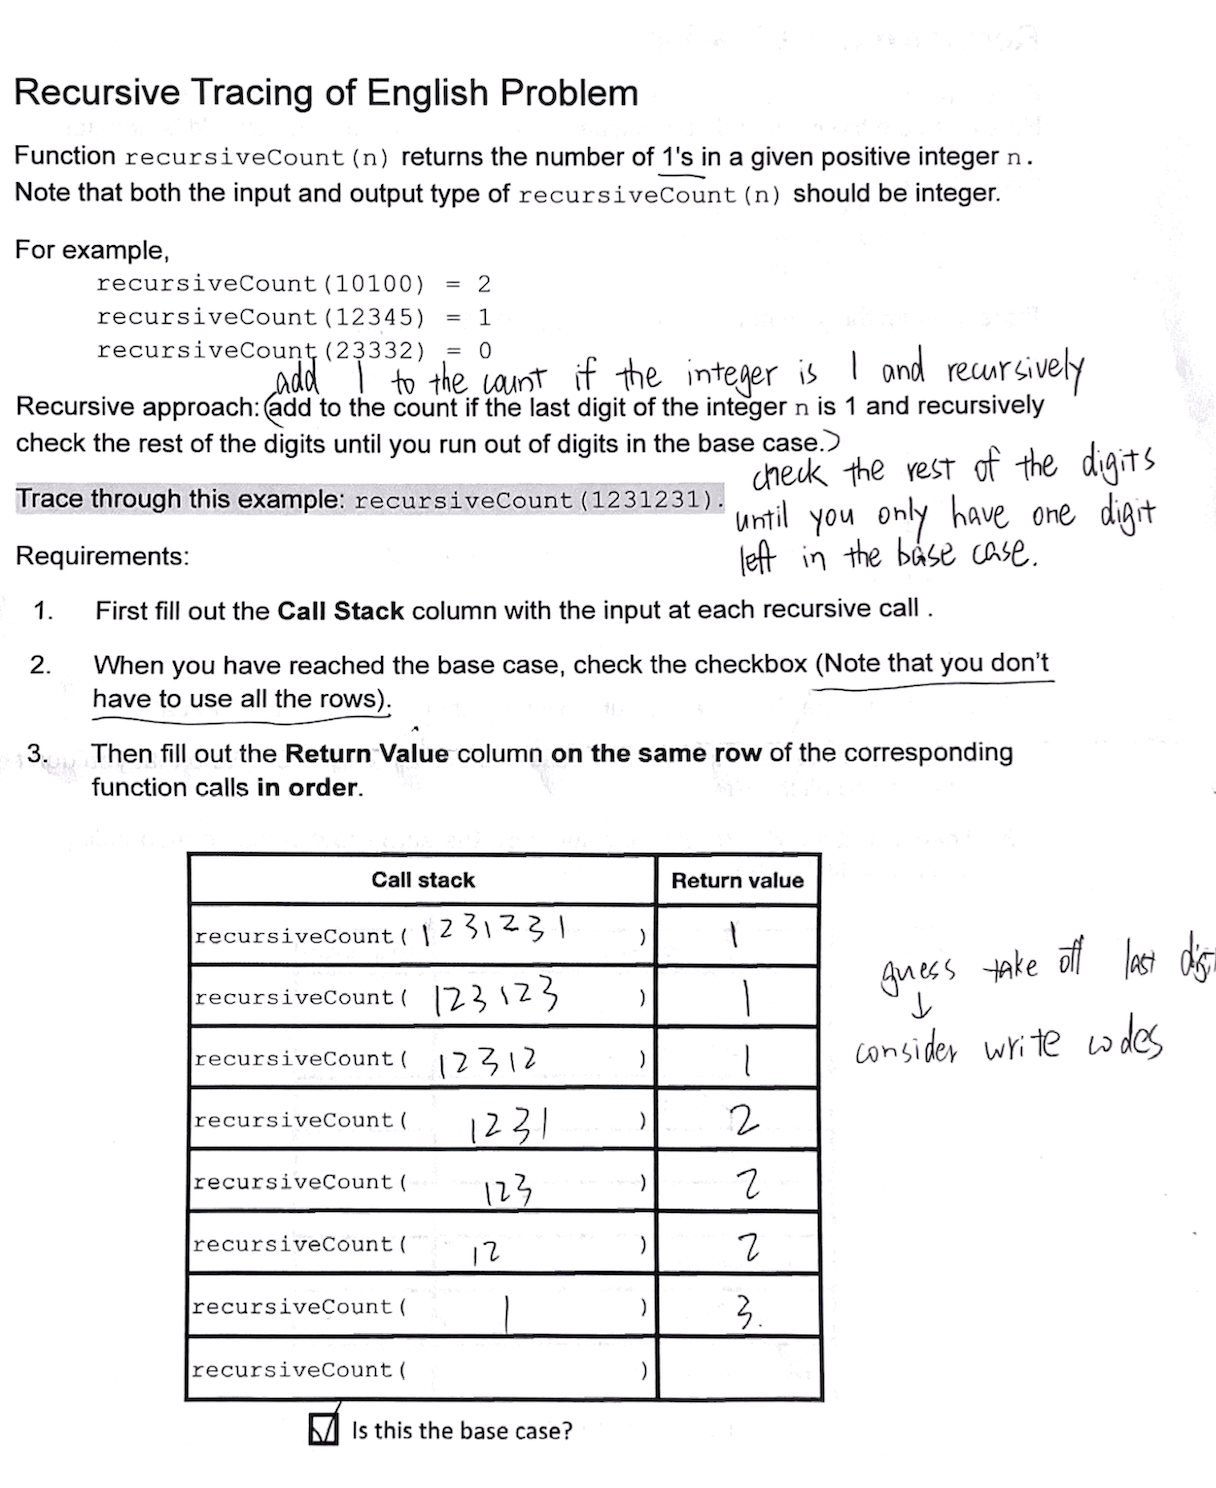 Recursive Tracing of English Problem
Function recursiveCount(n) returns the number of 1's in a given positive integer n.
Note that both the input and output type of recursiveCount(n) should be integer.
For example,
recursiveCount(10100) = 2
recursiveCount(12345) = 1
recursiveCount(23332) = 0
add 1 to the count if the integer is 1 and recursively
Recursive approach: (add to the count if the last digit of the integer n is 1 and recursively
check the rest of the digits until you run out of digits in the base case.)
check the rest of the digits
until you only have one digit
left in the base case.
Trace through this example: recursiveCount(1231231).
Requirements:
1. First fill out the Call Stack column with the input at each recursive call .
2. When you have reached the base case, check the checkbox (Note that you don't
have to use all the rows).
3. Then fill out the Return Value column on the same row of the corresponding
function calls in order.
Call stack Return value
recursiveCount( 1231231 ) 1
recursiveCount( 123123 ) 1
recursiveCount( 12312 ) 1
recursiveCount( 1231 ) 2
recursiveCount( 123 ) 2
recursiveCount( 12 ) 2
recursiveCount( 1 ) 3.
recursiveCount( )
guess take off last
consider write codes
Is this the base case?